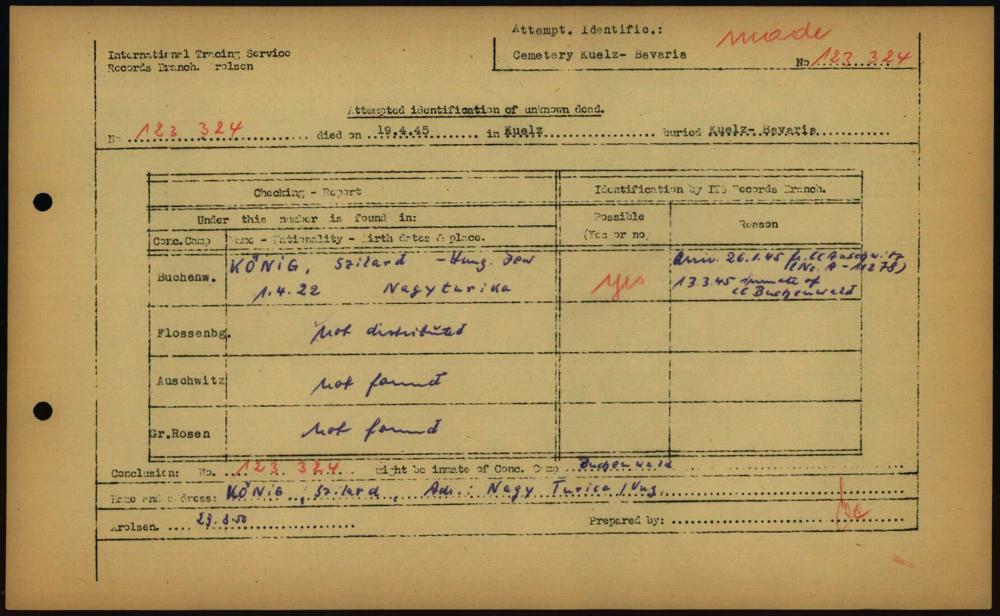 Attempt. Identific.: made
International Tracing Service Cemetery Kuelz- Bavaria
Records Branch. Arolsen No 123 324
Attempted identification of unknown dead.
No 123 324 died on 19.4.45 in Kuelz buried Kuelz- Bavaria
Checking - Report Identification by ITS Records Branch.
Under this number is found in: Possible Reason
Conc.Camp Name - Nationality - Birth dates & place. (Yes or no)
Buchenw. KÖNIG, Szilard - Hung. Jew yes Arriv. 26.1.45 fr. CC Auschwitz
(No. A-11278)
1.4.22 Nagyturika 13.3.45 inmate of
CC Buchenwald
Flossenbg. not distributed
Auschwitz not found
Gr.Rosen not found
Conclusion: No. 123 324 might be inmate of Conc. Camp Buchenwald
Name and address: KÖNIG, Szilard, Adr.: Nagy Turica /Ung.
Arolsen. 29.8.50 Prepared by: